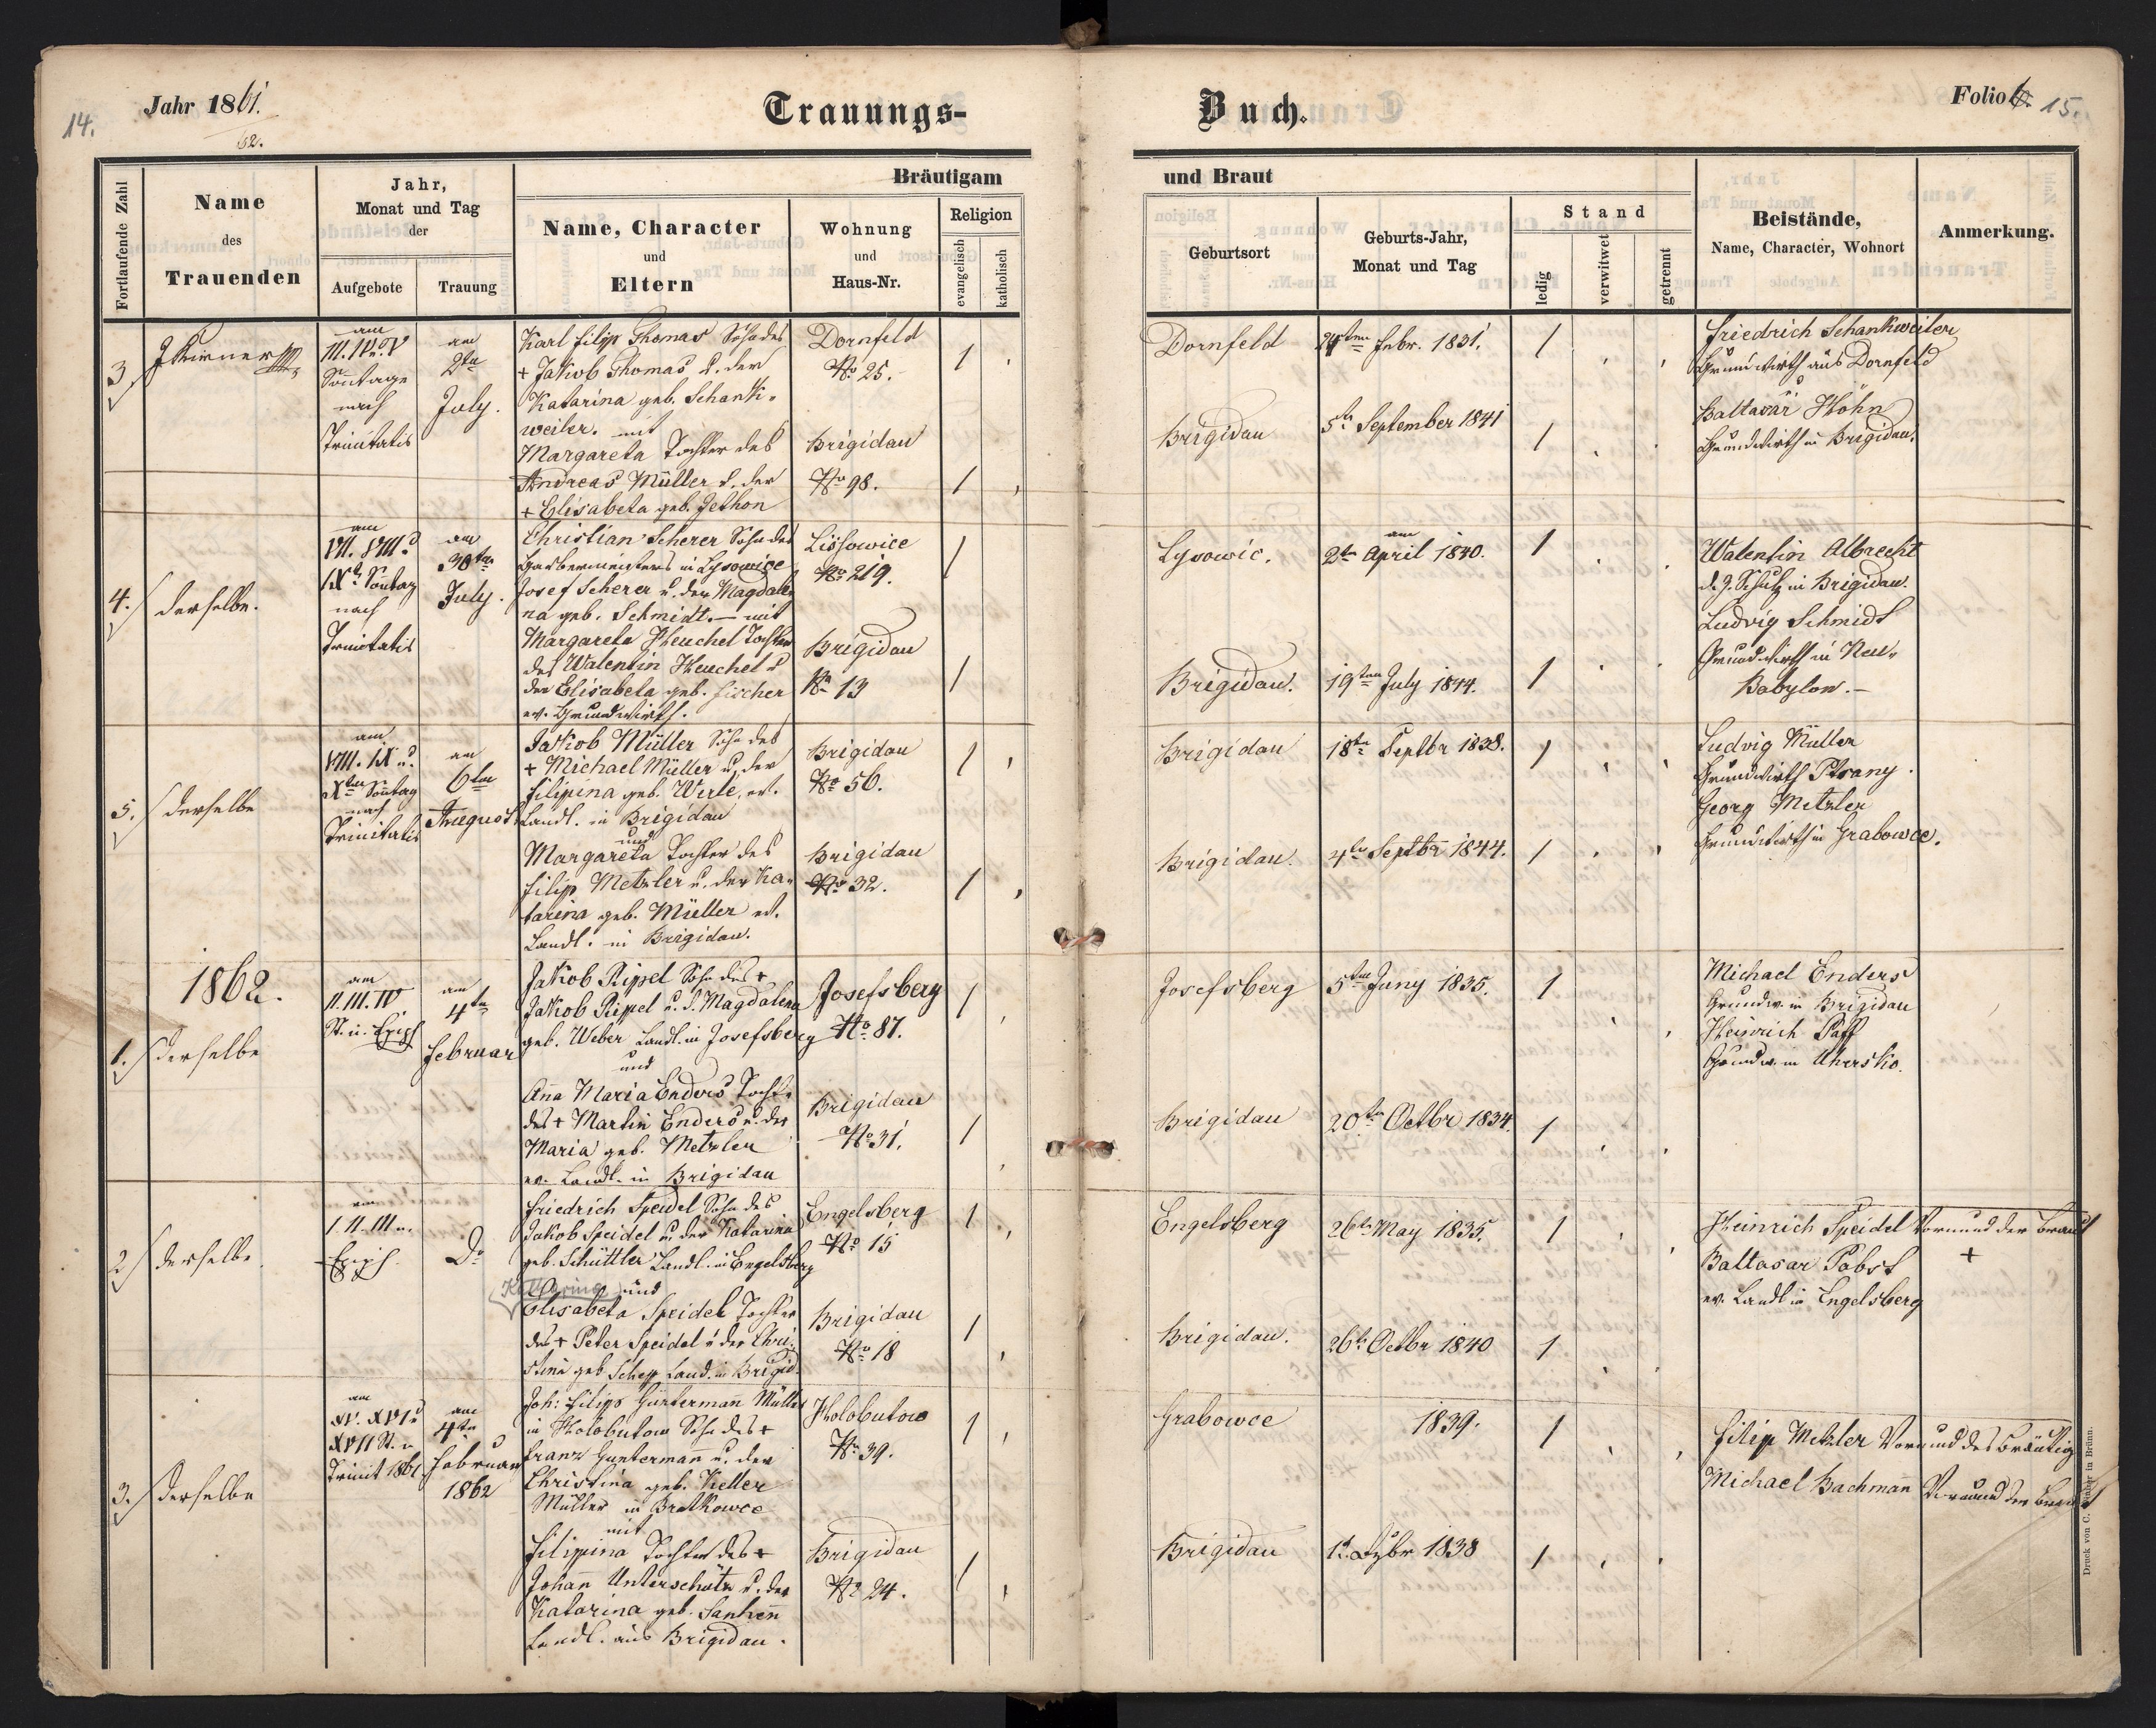 14.
Jahr 1861.
62.
Trauungs-
Buch.
Folio
15.
Fortlaufende Zahl
Name
des
Trauenden
Jahr,
Monat und Tag
der
Aufgebote
Trauung
Bräutigam
Name, Character
und
Eltern
Wohnung
und
Haus-Nr.
Religion
evangelisch
katholisch
und Braut
Geburtsort
Geburts-Jahr,
Monat und Tag
Stand
ledig
verwitwet
getrennt
Beistände,
Name, Character, Wohnort
Anmerkung.
3
am
III. IV u. V
Sonntage
nach
Trinitatis
am
2ten
July.
Karl Filip Thomas Sohn des
+ Jakob Thomas u. der
Katarina geb. Schank-
weiler. mit
Margareta Tochter des
Andreas Müller u. der
+ Elisabeta geb. Jethon
Dornfeld
No 25.
Brigidau
No 98.
Dornfeld
Febr. 1831.
Brigidau
5te September 1841
Friedrich Schankweiler
Grundwirth aus Dornfeld
u
Baltasar Höhn
Grundwirth in Brigidau.
4.
derselbe.
am
VII. VIII. u
IXte Sonntag
nach
Trinitatis
am
30ten
July.
Christian Scherer Sohn des
in Lysowice
Josef Scherer u. der Magdale
na geb. Schmidt. — mit
Margareta Heuchel Tochter
des Walentin Heuchel u
der Elisabeta geb. Fischer
ev. Grundwirth.
Lissowice
No 219.
Brigidau
No 13
Lysowic.
am
2ten April 1840.
Brigidau.
19ten July 1844.
Walentin Albrecht
d. Z. Schulz in Brigidau.
Ludvig Schmidt
Grundwirth in Neu-
Babylon. —
5.
derselbe
am
VIII. IX u.
Xten Sonntag
nach
Trinitatis
am
6ten
August
Jakob Müller Sohn des
+ Michael Müller u. der
Filipina geb. Werle, ev.
Landl. in Brigidau
und
Margareta Tochter des
Filip Metzler u. der Ka-
tarina geb. Müller ev.
Landl. in Brigidau.
Brigidau
No 56.
Brigidau
No 32.
Brigidau
18ten Septbr 1838.
Brigidau.
4te Septbr 1844.
Ludvig Müller
Grundwirth
Georg Metzler
Grundwirth in Grabowce.
1862.
1.
derselbe
am
II. III. IV
St. n. Epiph
am
4ten
Februar
Jakob Rippel Sohn des +
Jakob Rippel u. d. Magdalena
geb. Weber Landl. in Josefsberg
und
Anna Maria Enders Tocht.
des + Martin Enders u. der
Maria geb. Metzler
ev. Landl. in Brigidau
Josefsberg
No 87.
Brigidau
No 31.
Josefsberg
5ten Juny 1835.
Brigidau
20ten Octbr 1834.
Michael Enders
Grundw. in Brigidau
Heinrich Paff
Grundw. in Uhersko.
2
derselbe
am
I. II. III n.
Epiph.
Do
Friedrich Speidel Sohn des
Jakob Speidel u. der Katarina
geb. Schüttler Landl. in Engelsberg
Katharina und
Elisabeta Speidel Tochter
des + Peter Speidel u. der Chri-
stina geb Schepp Land. in Brigid.
Engelsberg
No 15
Brigidau
No 18
Engelsberg
26te May 1835.
Brigidau.
26te Octbr 1840
Heinrich Speidel Vormund der Braut
+
Baltasar Pabst
ev. Landl in Engelsberg
3.
derselbe
am
XV. XVI u
XVII St. n
Trinit 1861
am
4ten
Februar
1862
Joh: Filipp Guntermann Müller
in Holobutow Sohn des +
Franz Guntermann u. der
Christina geb. Keller
Müller in Bratkowce
mit
Filippina Tochter des +
Johann Unterschütz u. der
Katarina geb.
Landl. aus Brigidau.
Holobutow
No 39.
Brigidau
No 24.
Grabowce
1839.
Brigidau
1838
Filip Metzler Vormund des Bräutig
Michael Bachmann Vormund der Braut
Druck von C. in Brünn.